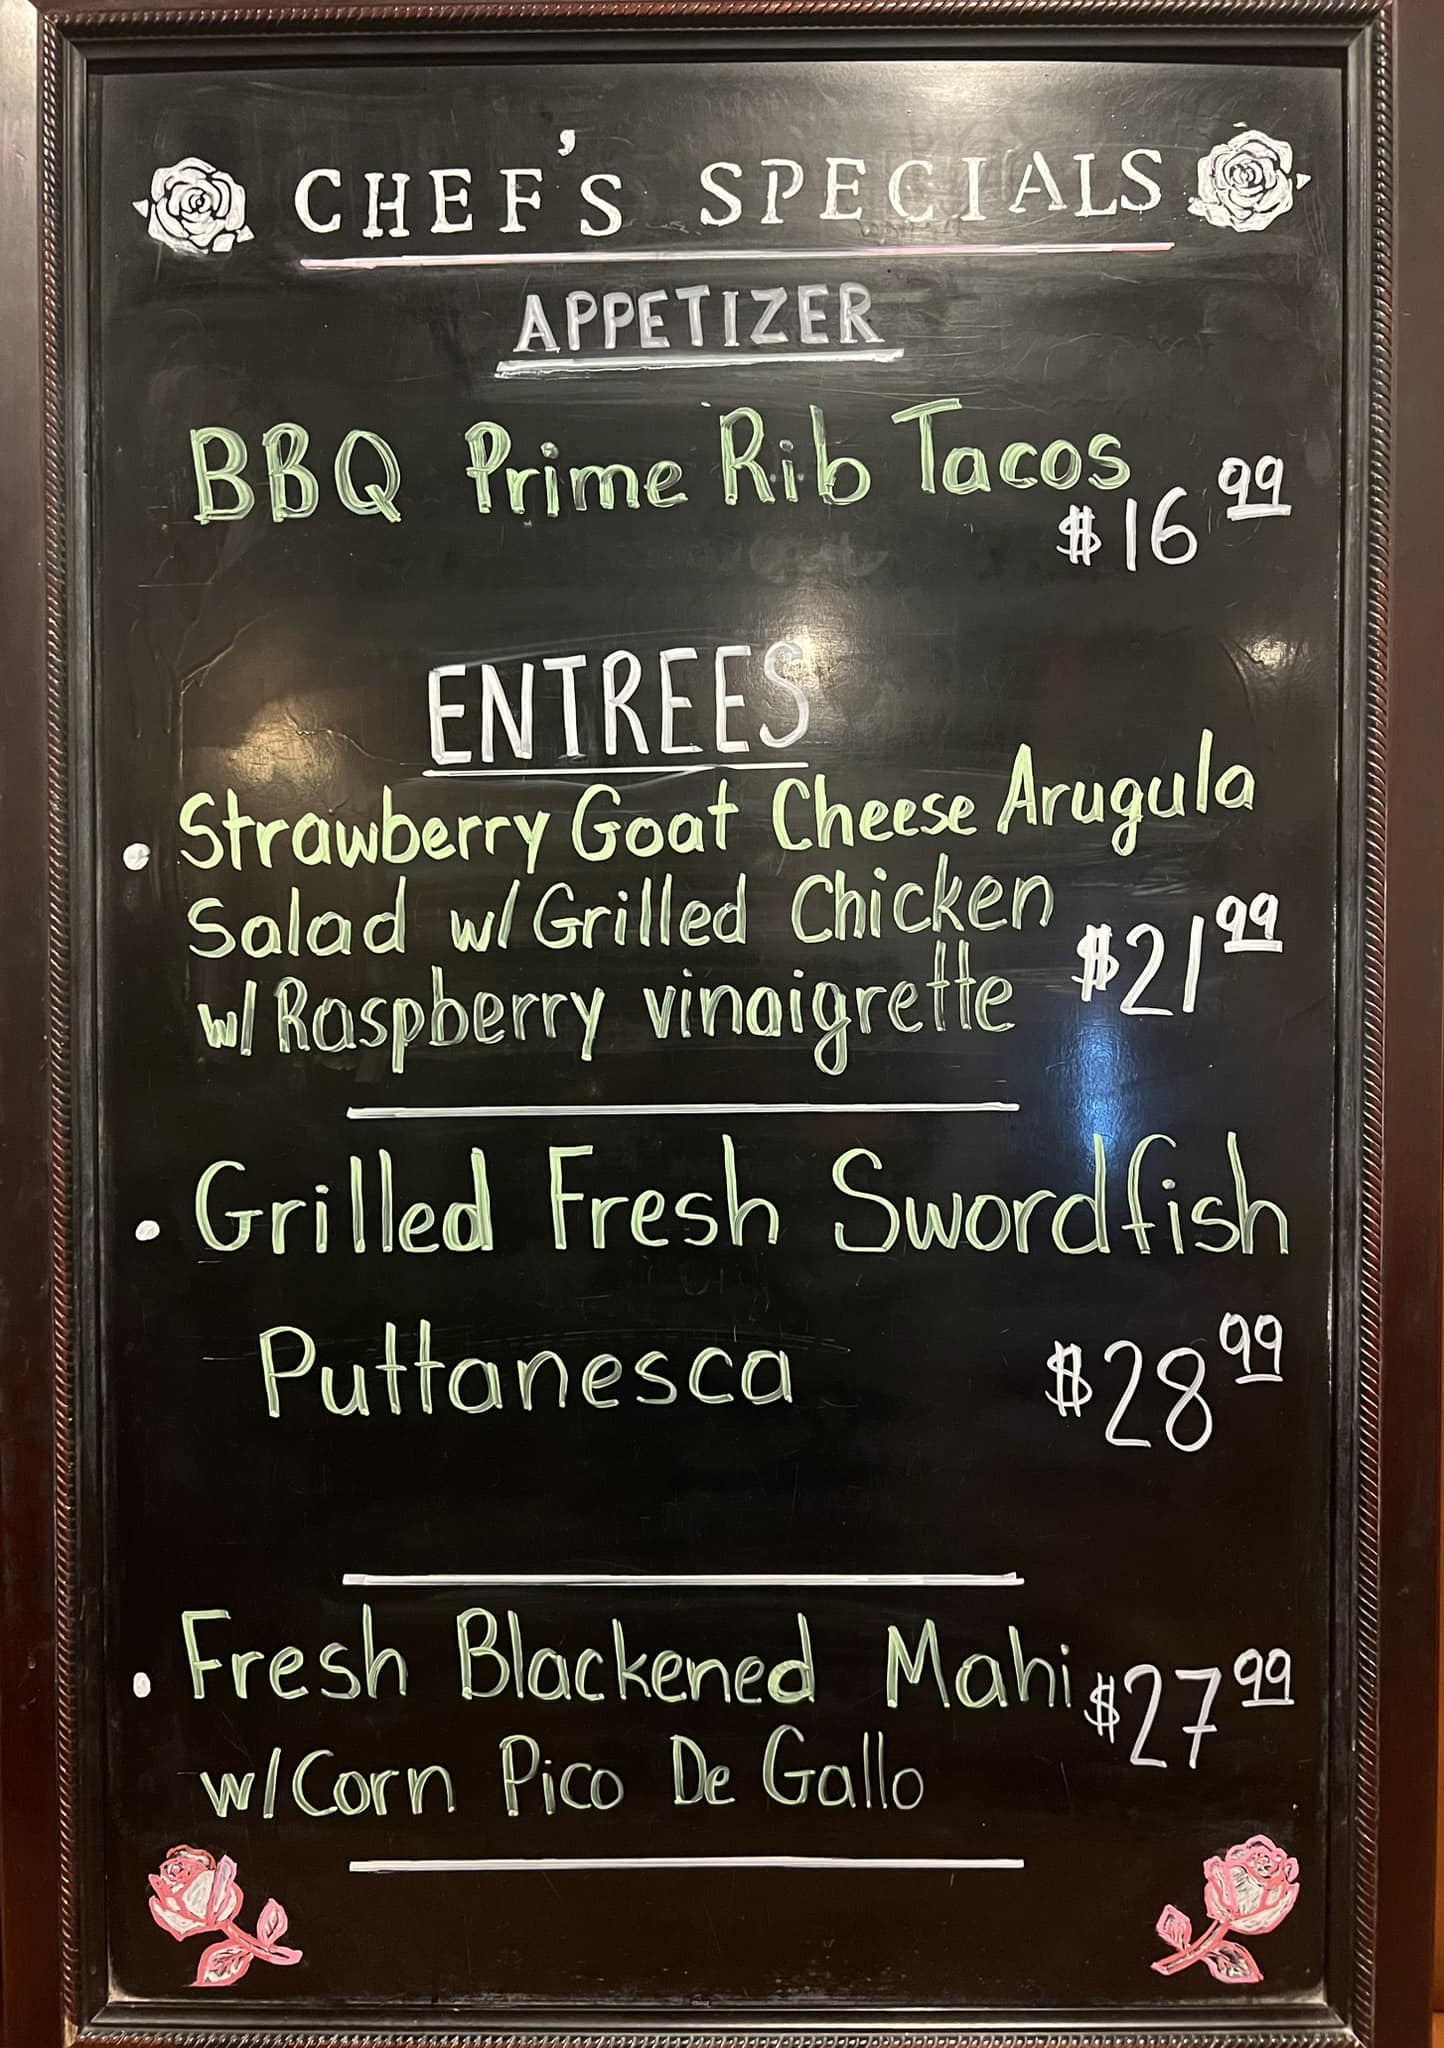 CHEF'S SPECIALS
APPETIZER
BBQ Prime Rib Tacos
$16 99
ENTREES
• Strawberry Goat Cheese Arugula
Salad w/ Grilled Chicken
w/ Raspberry vinaigrette $21 99
• Grilled Fresh Swordfish
Puttanesca $28 99
• Fresh Blackened Mahi $27 99
w/ Corn Pico De Gallo